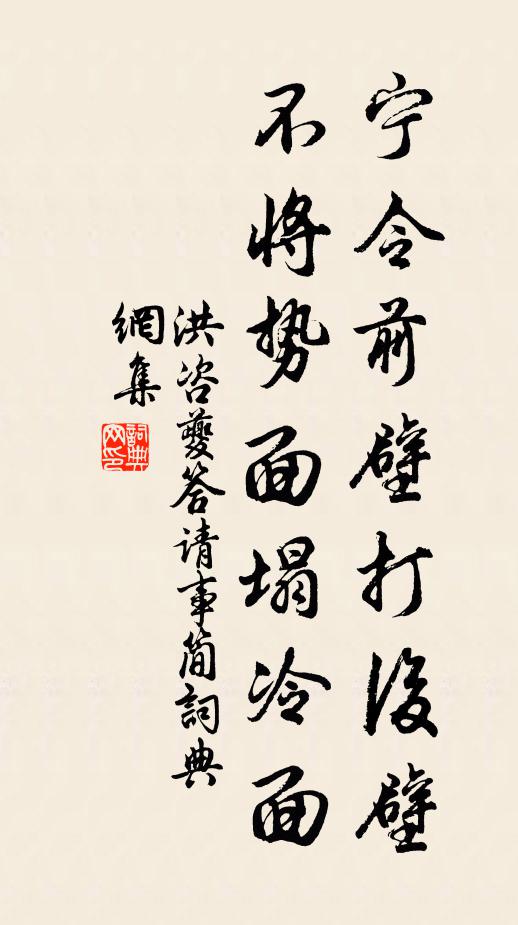 宁令前壁打後壁
不将势面塌冷面
洪咨夔答请事简詞典
網集
詞典
网印